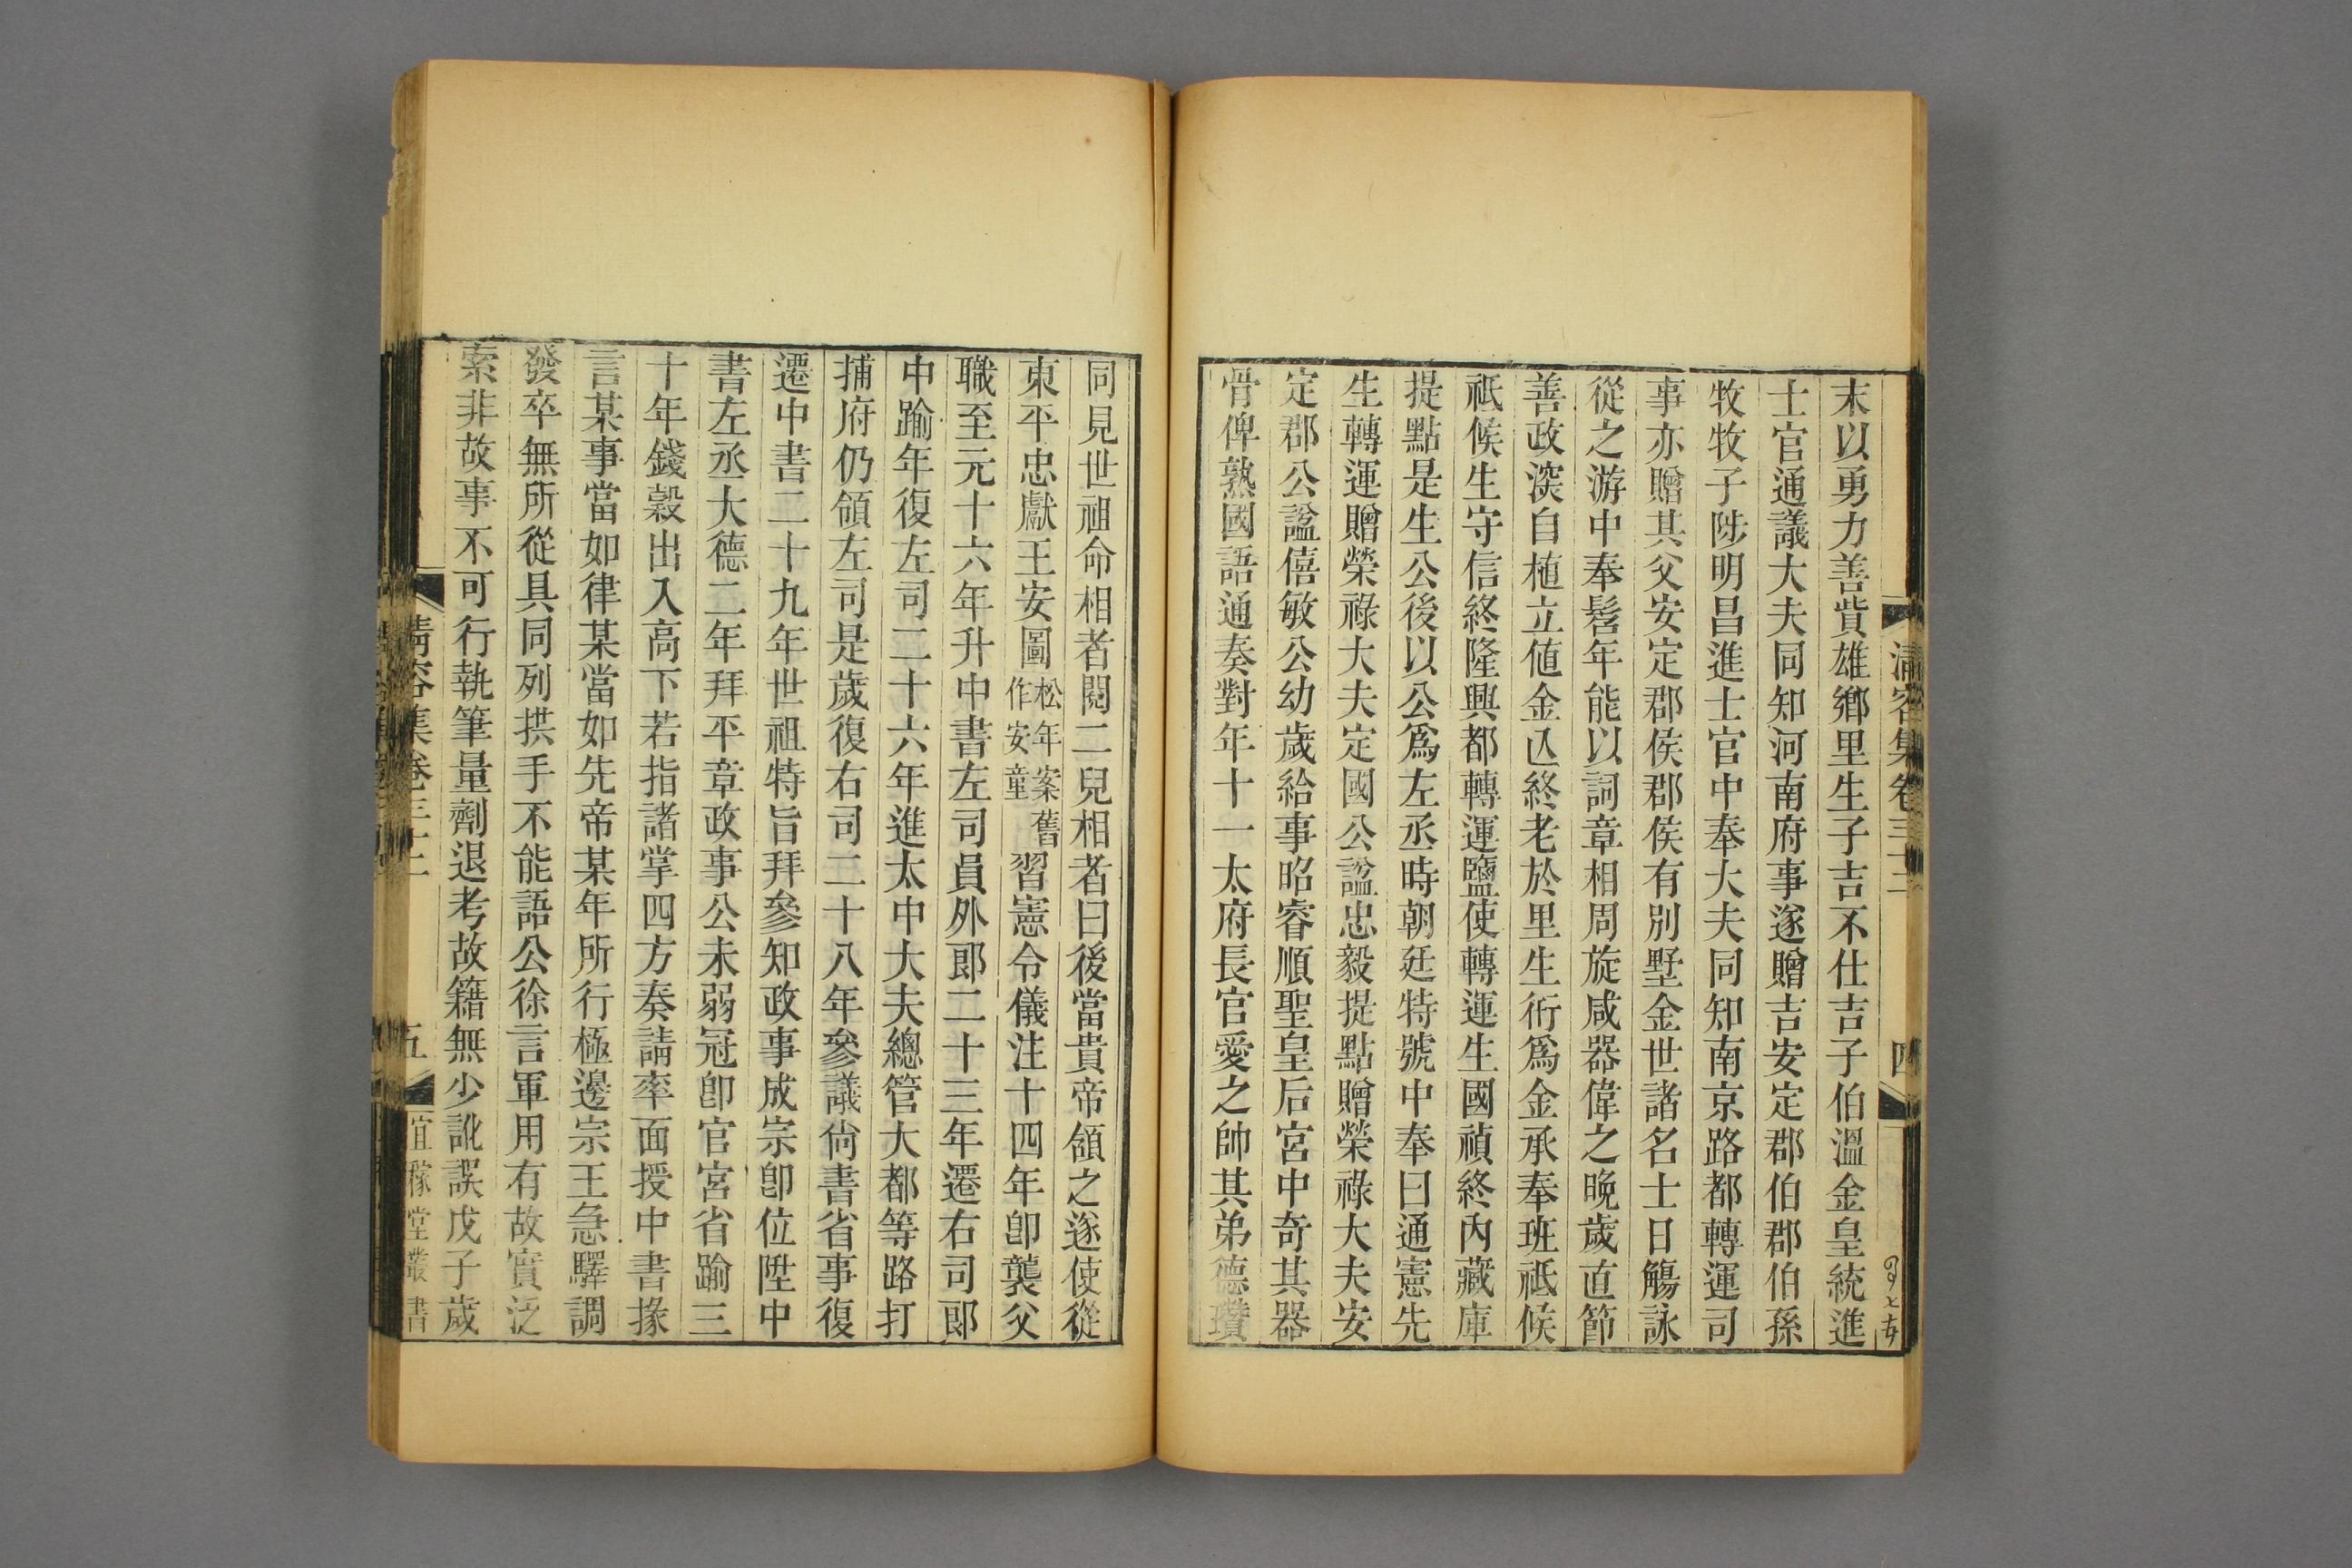 清容集卷三十二
四
末以勇力善貲雄鄉里生子吉不仕吉子伯溫金皇統進
士官通議大夫同知河南府事遂贈吉安定郡伯郡伯孫
牧牧子陟明昌進士官中奉大夫同知南京路都轉運司
事亦贈其父安定郡侯郡侯有別墅金世諸名士日觴詠
從之游中奉髫年能以詞章相周旋咸器偉之晚歲直節
善政深自植立値金亾終老於里生術爲金承奉班祗候
祗候生守信終隆興都轉運鹽使轉運生國禎終內藏庫
提點是生公後以公爲左丞時朝廷特號中奉曰通憲先
生轉運贈榮祿大夫定國公諡忠毅提點贈榮祿大夫安
定郡公諡僖敏公幼歲給事昭睿順聖皇后宮中奇其器
骨俾熟國語通奏對年十一太府長官愛之帥其弟德瓚
同見世祖命相者閱二兒相者曰後當貴帝頷之遂使從
東平忠獻王安圖松年案舊作安童習憲令儀注十四年卽襲父
職至元十六年升中書左司員外郞二十三年遷右司郞
中踰年復左司二十六年進太中大夫總管大都等路打
捕府仍領左司是歲復右司二十八年參議尙書省事復
遷中書二十九年世祖特旨拜參知政事成宗卽位陞中
書左丞大德二年拜平章政事公未弱冠卽官宮省踰三
十年錢穀出入高下若指諸掌四方奏請率面授中書掾
言某事當如律某當如先帝某年所行極邊宗王急驛調
發卒無所從具同列拱手不能語公徐言軍用有故實泛
索非故事不可行執筆量劑退考故籍無少訛誤戊子歲
清容集卷三十二
五
宜稼堂叢書